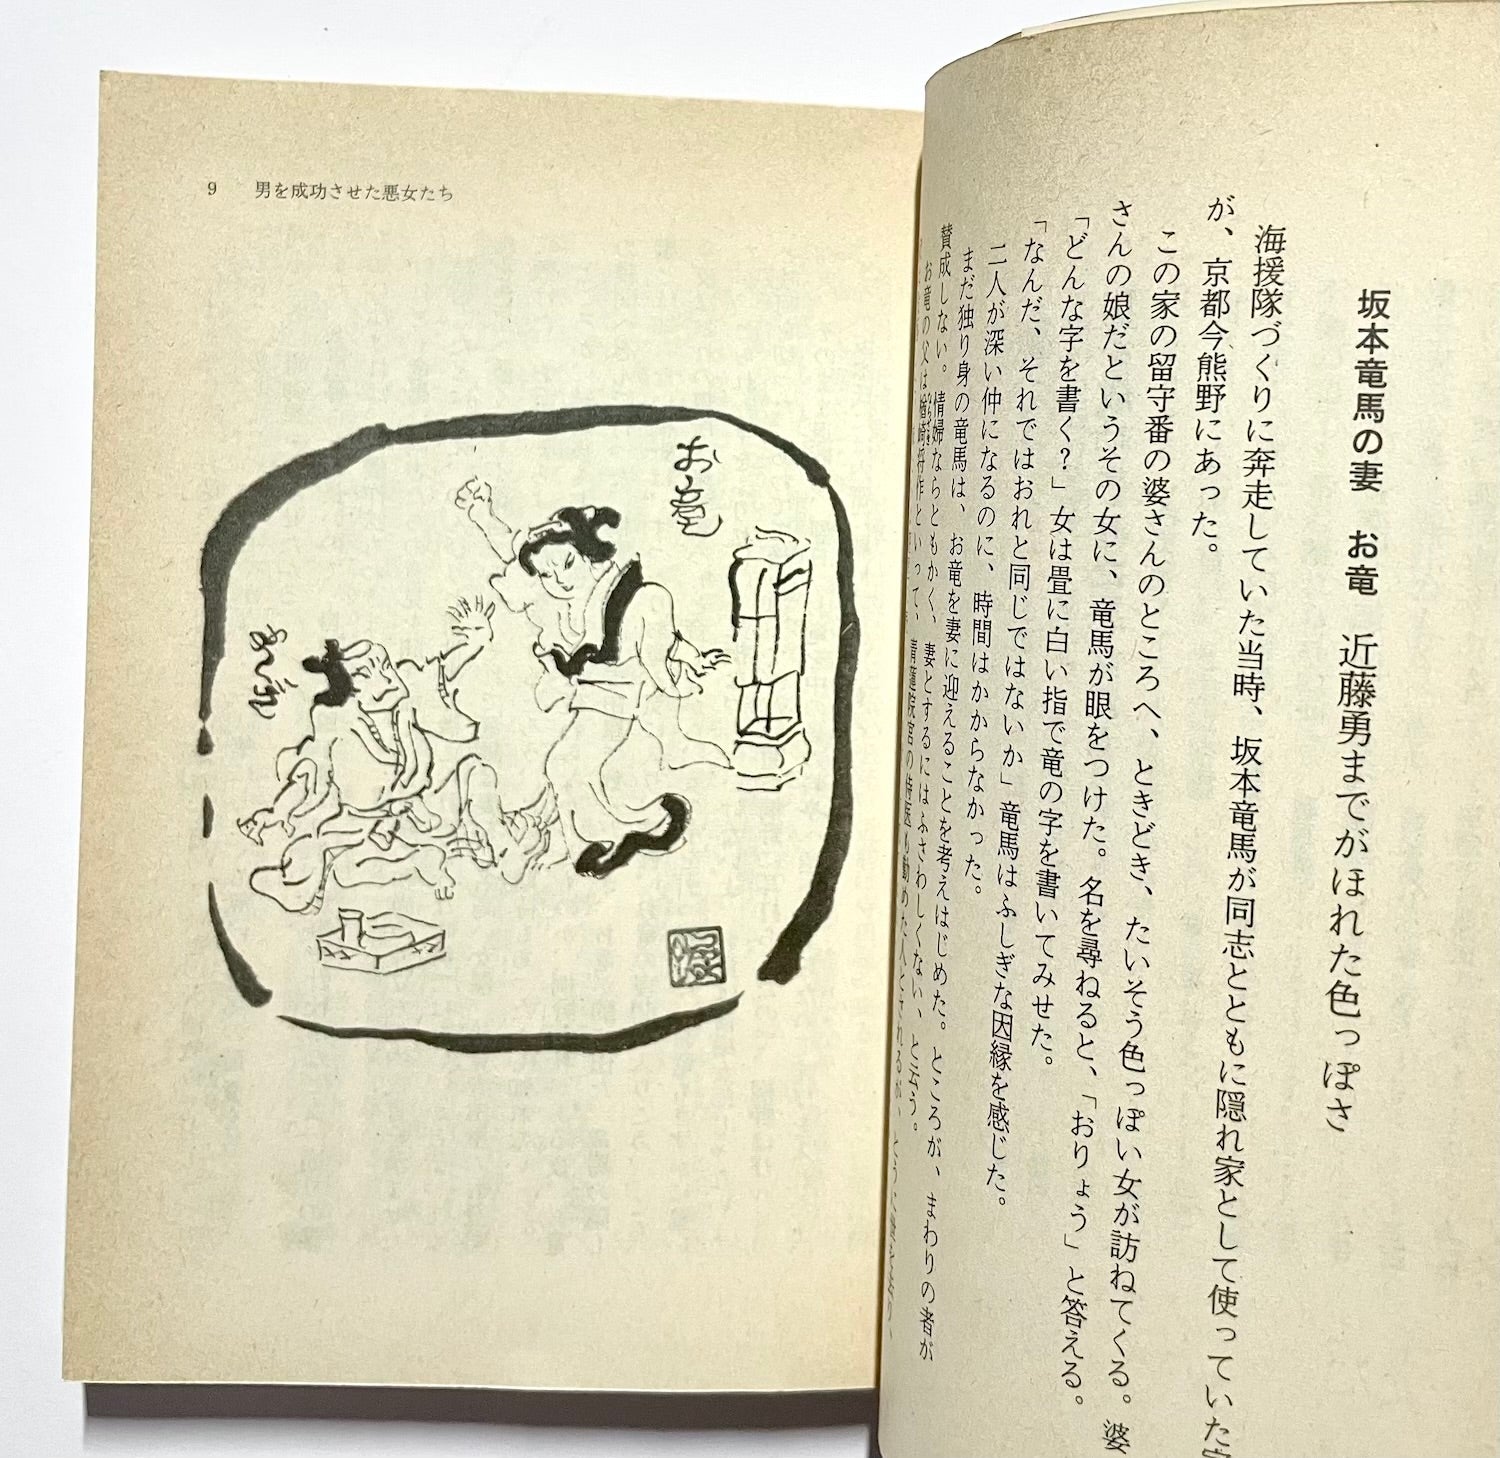 坂本竜馬の妻　お竜　近藤勇までがほれた色っぽさ
海援隊づくりに奔走していた当時、坂本竜馬が同志とともに隠れ家として使っていた家
が、京都今熊野にあった。
この家の留守番の婆さんのところへ、ときどき、たいそう色っぽい女が訪ねてくる。婆
さんの娘だというその女に、竜馬が眼をつけた。名を尋ねると、「おりょう」と答える。
「どんな字を書く？」女は畳に白い指で竜の字を書いてみせた。
「なんだ、それではおれと同じではないか」竜馬はふしぎな因縁を感じた。
二人が深い仲になるのに、時間はかからなかった。
まだ独り身の竜馬は、お竜を妻に迎えることを考えはじめた。ところが、まわりの者が
賛成しない。情婦ならともかく、妻とするにはふさわしくない、と云う。
お竜の父は楢崎将作といって、青蓮院宮の侍医も勤めた人とされるが、
9　男を成功させた悪女たち
お竜